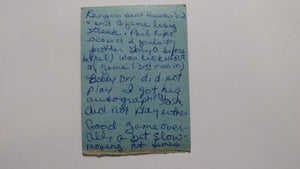 Rangers beat Hawks 3-2
+ end 4 game losing
streak. Phil Espo
scored 2 goals
brother Tony O
Phil) was kicked out
of game (3rd man in)
Bobby Orr did not
play I got his
autograph!
did not play either
Good game over-
ally a bit slow-
moving at times